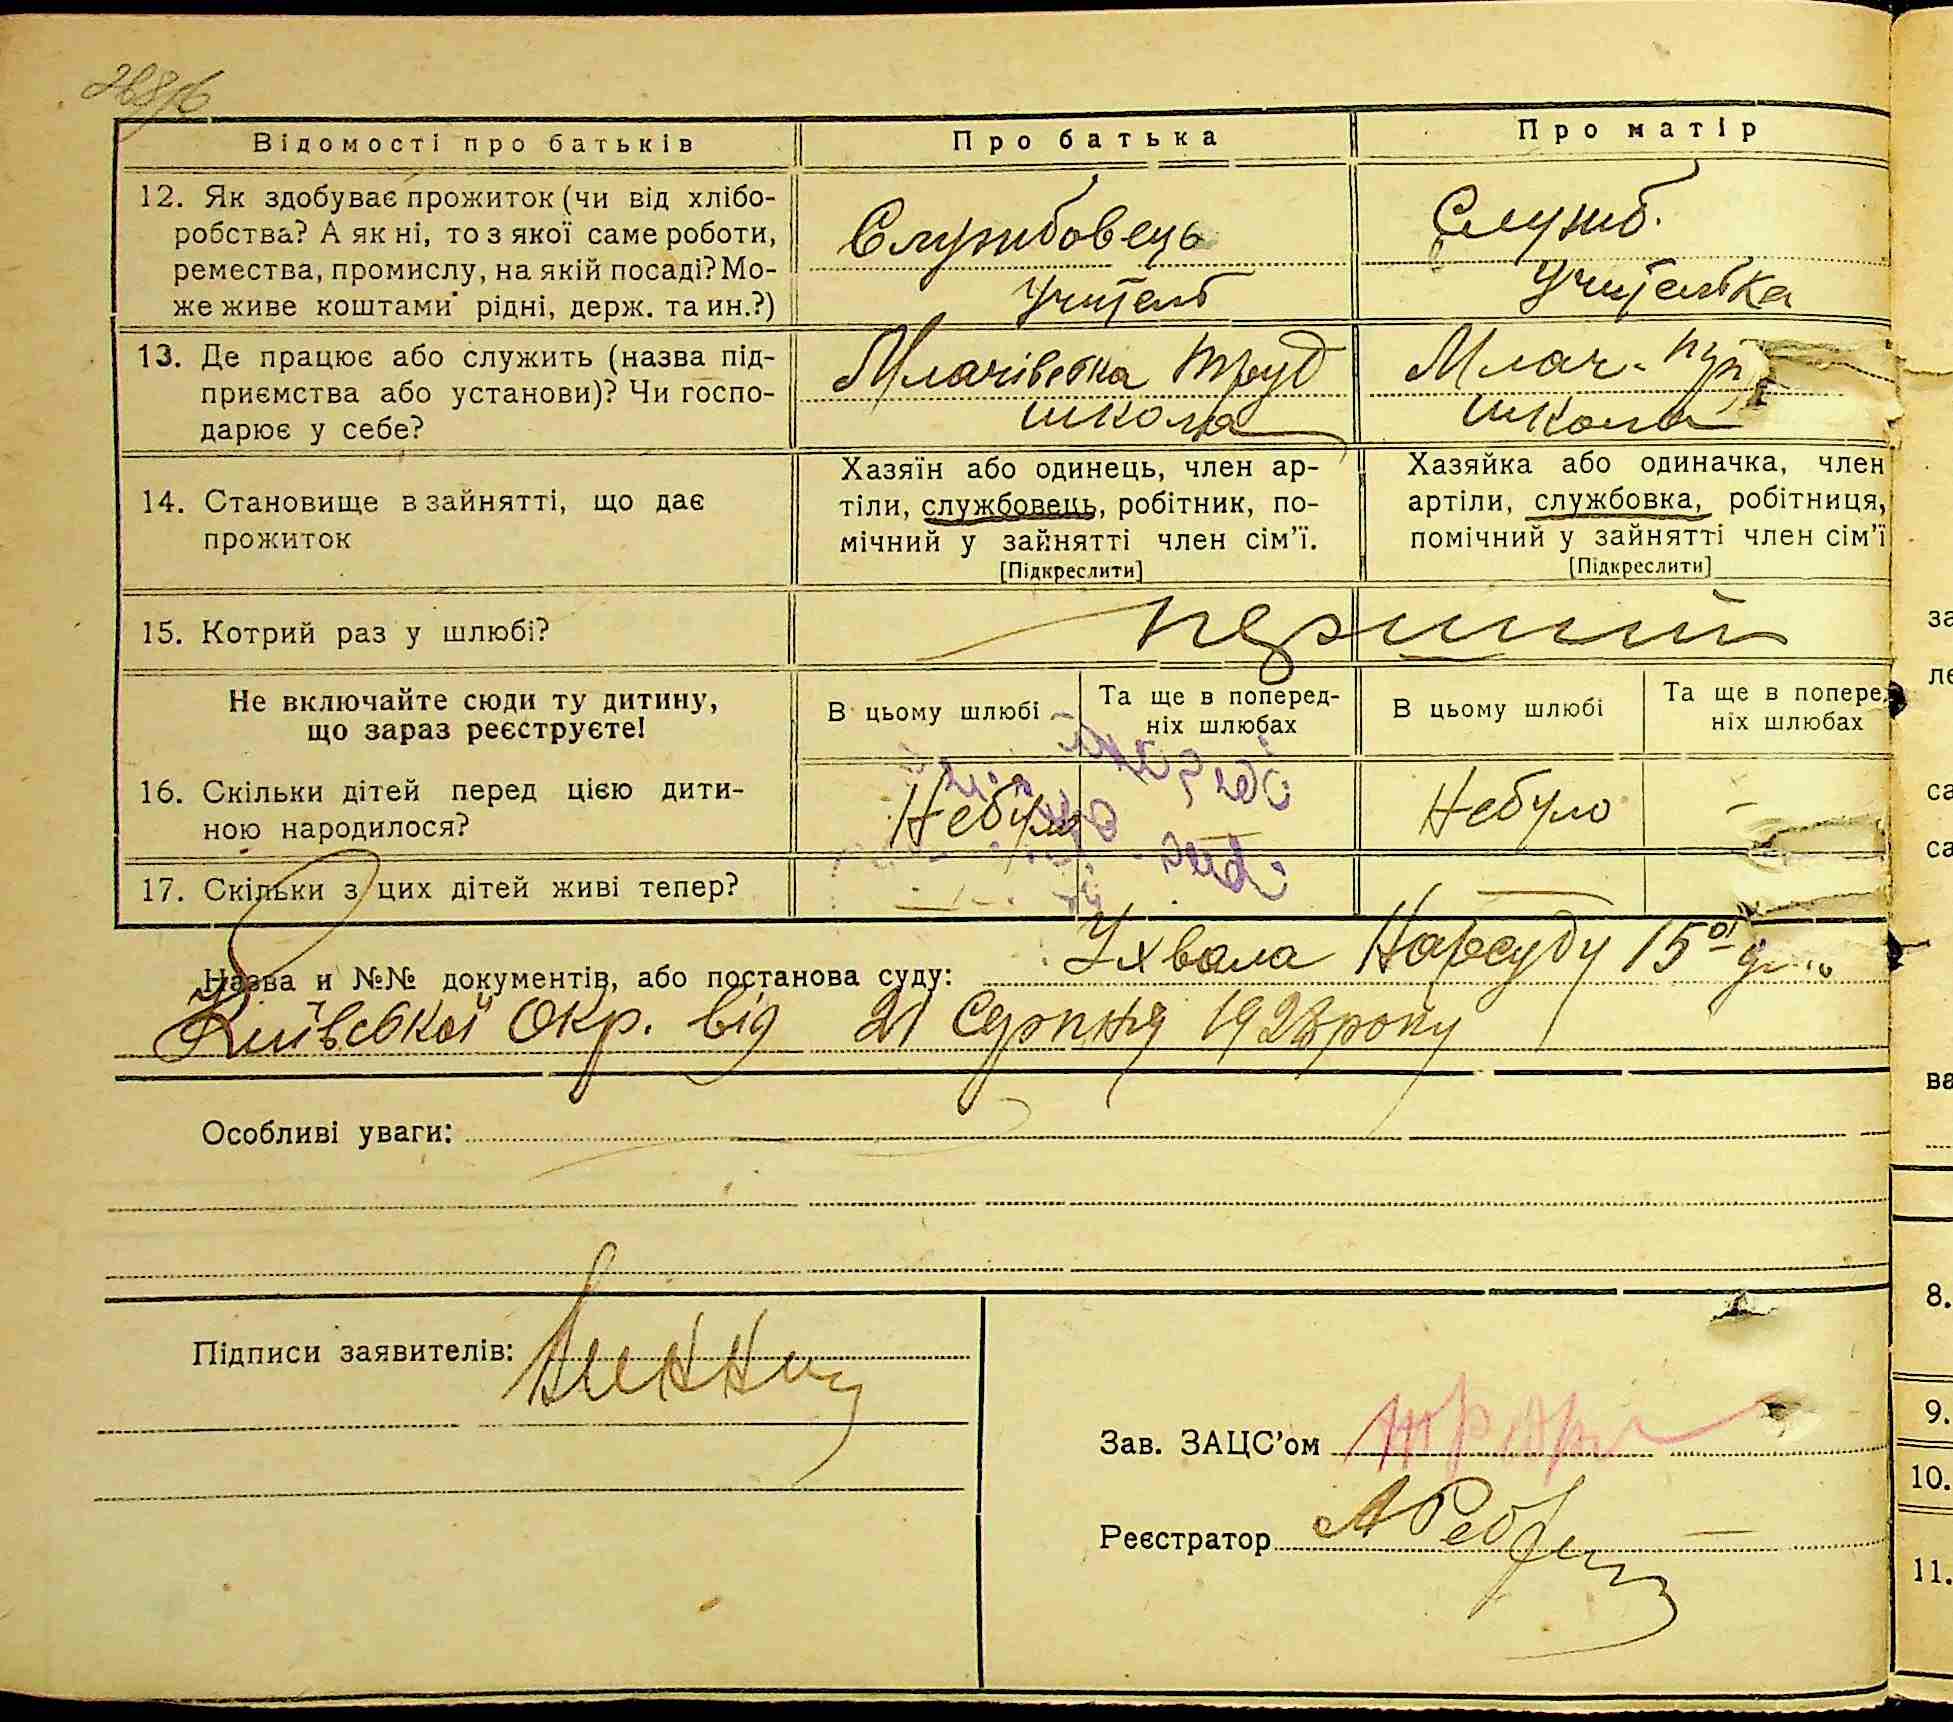 Відомості про батьків
Про батька
Про матір
12. Як здобуває прожиток (чи від хлібо-
робства? А як ні, то з якої саме роботи,
ремества, промислу, на якій посаді? Мо-
же живе коштами рідні, держ. та ин.?)
Службовець
Учитель
Служб.
Учителька
13. Де працює або служить (назва під-
приємства або установи)? Чи госпо-
дарює у себе?
Млачівська труд
школа
Млач.
школа
14. Становище в зайнятті, що дає
прожиток
Хазяїн або одинець, член ар-
тіли, службовець, робітник, по-
мічний у зайнятті член сім’ї.
[Підкреслити]
Хазяйка або одиначка, член
артіли, службовка, робітниця,
помічний у зайнятті член сім’ї
[Підкреслити]
15. Котрий раз у шлюбі?
перший
Не включайте сюди ту дитину,
що зараз реєструєте!
В цьому шлюбі
Та ще в поперед-
ніх шлюбах
В цьому шлюбі
Та ще в попере
ніх шлюбах
16. Скільки дітей перед цією дити-
ною народилося?
Небуло
Небуло
–
17. Скільки з цих дітей живі тепер?
Назва и №№ документів, або постанова суду: Ухвала Нарсуду 15
Київської Окр. від 21 Серпня 1928 року
Особливі уваги:
Підписи заявителів:
Зав. ЗАЦС’ом
Реєстратор
за
ле
са
са
ва
8.
9.
10.
11.